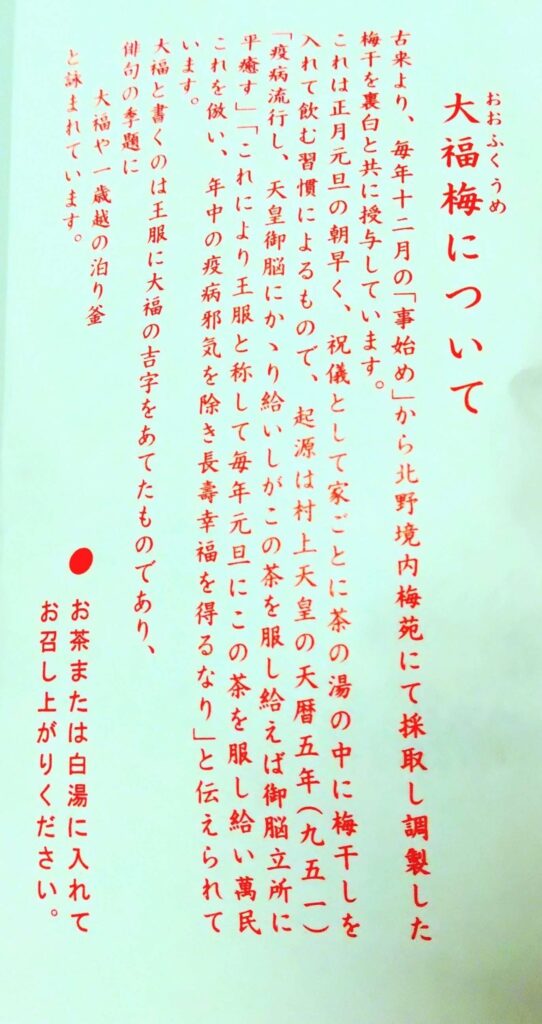 おおふくうめ
大福梅について
古来より、毎年十二月の「事始め」から北野境内梅苑にて採取し調製した
梅干を裏白と共に授与しています。
これは正月元旦の朝早く、祝儀として家ごとに茶の湯の中に梅干しを
入れて飲む習慣によるもので、起源は村上天皇の天暦五年(九五一)
「疫病流行し、天皇御脳にかゝり給いしがこの茶を服し給えば御脳立所に
平癒す」「これにより王服と称して毎年元旦にこの茶を服し給い萬民
これを倣い、年中の疫病邪気を除き長壽幸福を得るなり」と伝えられて
います。
大福と書くのは王服に大福の吉字をあてたものであり、
俳句の季題に
大福や一歳越の泊り釜
と詠まれています。
●お茶または白湯に入れて
お召し上がりください。